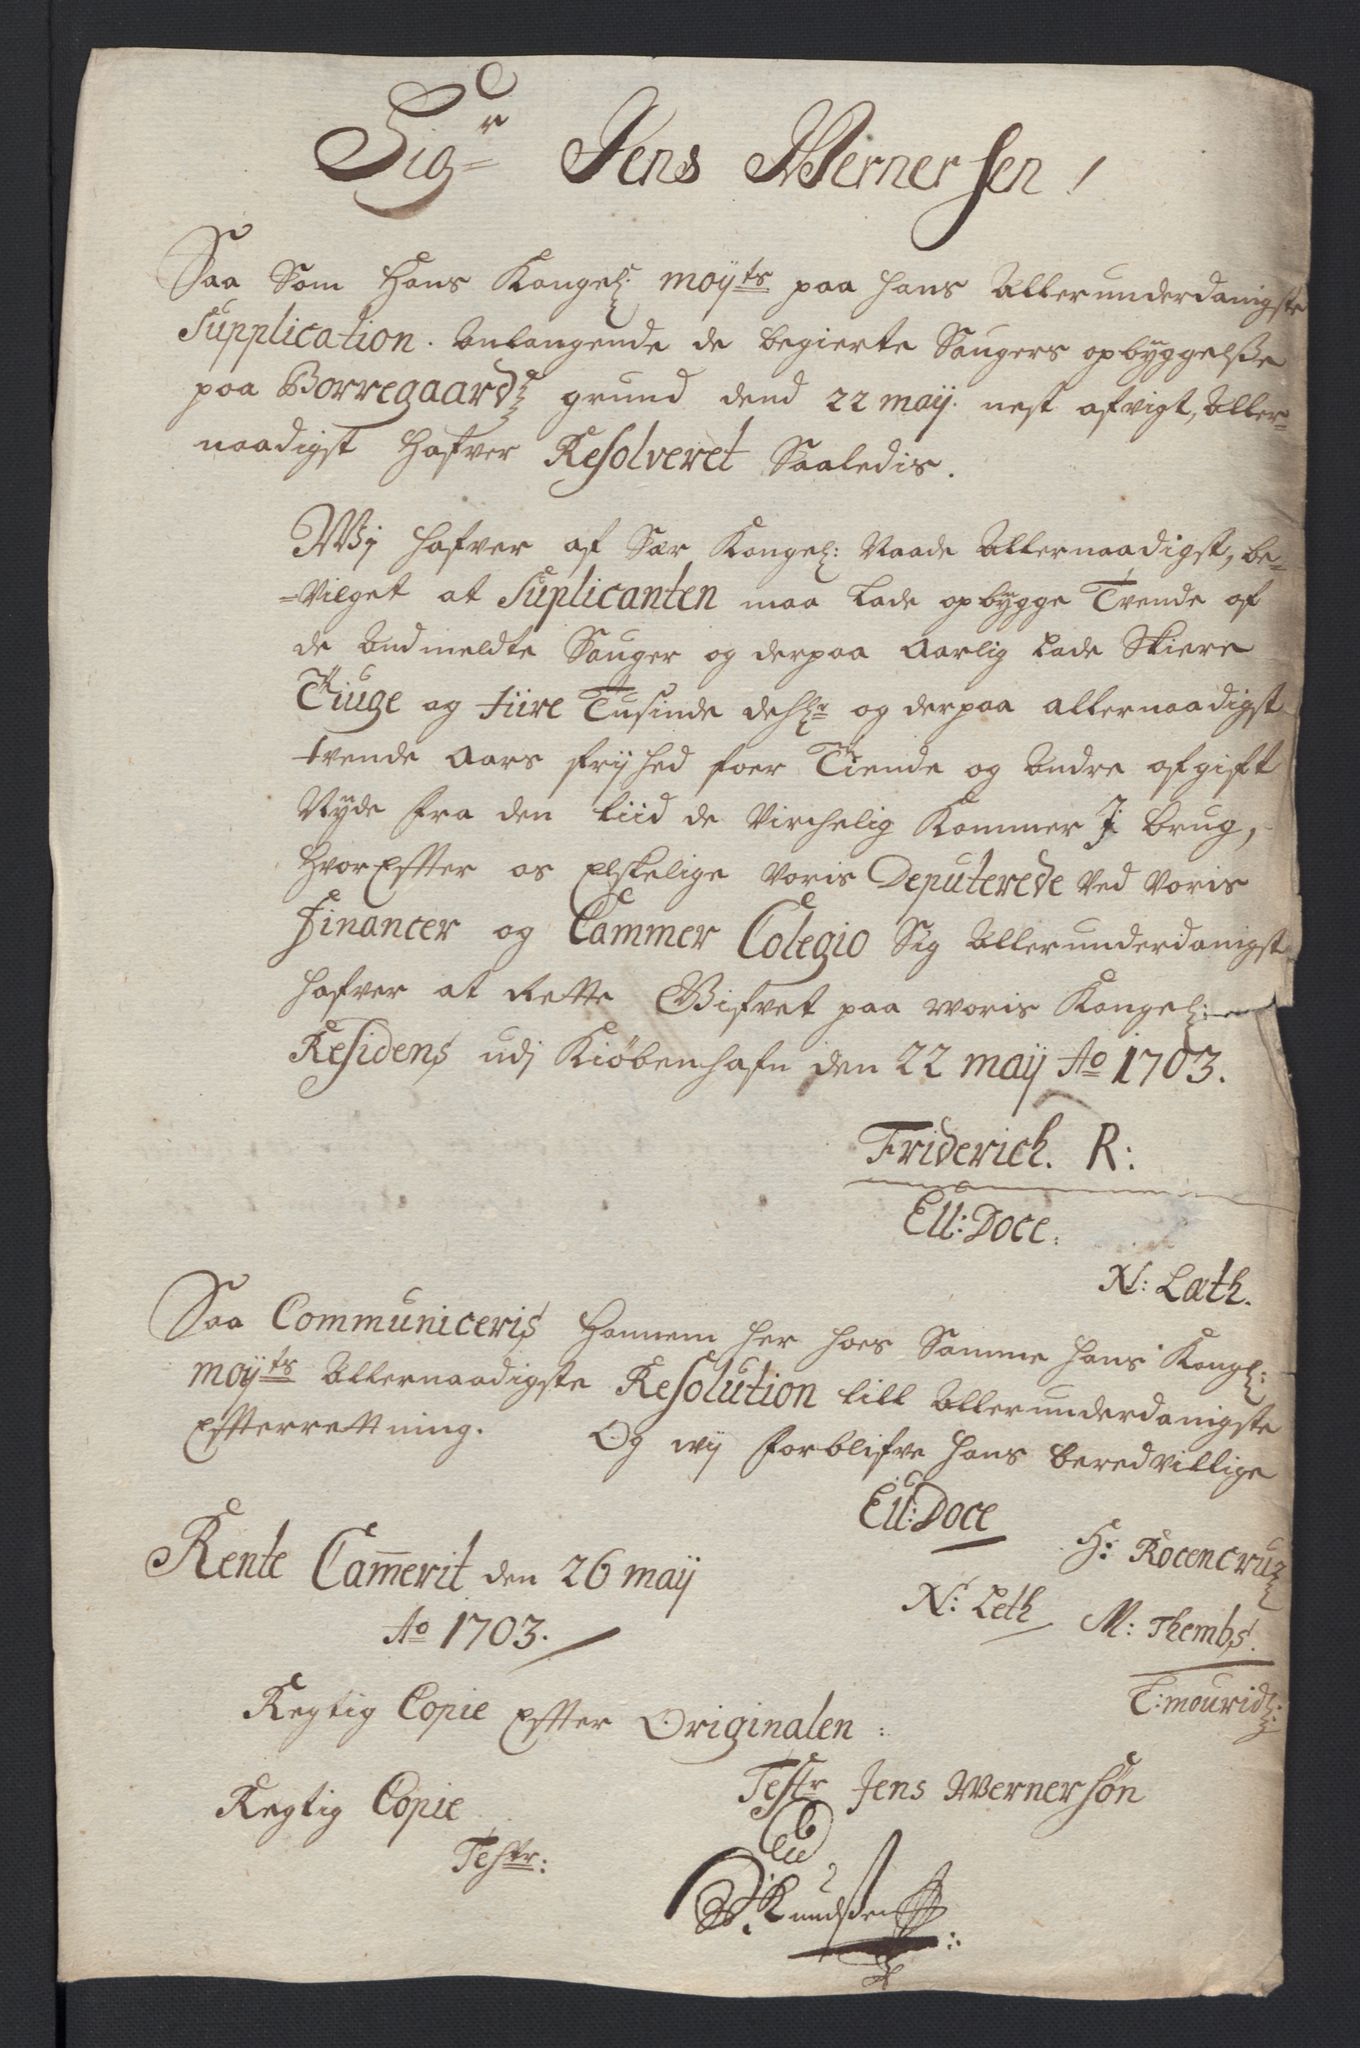 Sigr Jens Wernersen,
Saa Som Hans Kongel: Mayts paa hans Allerunderdanigste
Supplication. Anlangende de begierte Saugers opbyggelsse
paa Borregaards grund dend 22 maij. nest afvigt, Aller-
naadigst hafver Resolveret Saaledis.
Wij hafver af Sær Kongel: Naade Allernaadigst, be-
-vilget at Suplicanten maa Lade opbygge Trende af
de Andmeldte Sauger og derpaa Aarlig Lade Skiere
Tiuge og fiire Tusinde dehlr og derpaa allernaadigst
trende Aars frijhed foer Tiende og Andre afgift
Nyde fra den tiid de Virchelig Kommer J brug,
hvorEffter os Elskelige Voris Deputerede Ved Voris
Financer og Cammer Colegio Sig Allerunderdanigst
hafver at Rette Gifvet paa Woris Kongel:
Residens udj Kiöbenhafn den 22 maij Ao 1703.
Friderich. R:
Ell: Doce.
N: Læth.
Saa Communiceris Hannem her hoes Samme hans Kongl:
Mayts Allernaadigste Resolution till Allerunderdanigste
Effterrettning. Og wij forblifve hans beredvillige
Ell: Doce
H: Rocencruz
Rente Camerit den 26 maij
N: Leth M: Thembs.
Ao 1703.
T: mouridz:
Regtig Copie Effter Originalen:
Testr Jens Wernersön
Regtig Copie
Testr:
Knudsen